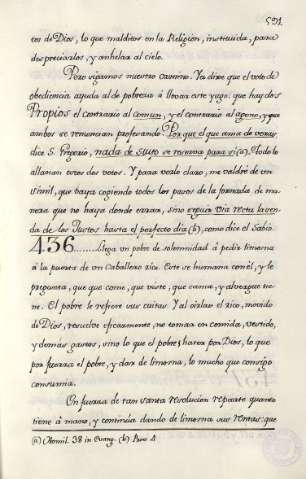 tes de Dios, lo que malditos en la Religion, instituida, para
despreciarlos, y anhelar al cielo.
Pero sigamos nuestro camino. Ya dixe que el voto de
obediencia ayuda al de pobreza à llevar este yugo. que hay dos
Propios el contrario al comun, y el contrario al ageno, y que
ambos se renuncian profesando. Por que el que
dice S. Gregorio, nada de suyo se reserva para sí (a). Todo lo
allanan estos dos votos. Y para verlo claro, me valdré de un
simil, que vaya cogiendo todos los pasos de la jornada de ma-
nera que no haya donde errar, sino
da de los Justos hasta el perfecto dia (b), como dice el Sabio.
436......Llega un pobre de solemnidad à pedir limosna
à la puerta de un Caballero rico. Este se humana con él, y le
pregunta, que que come, que viste, que cama, y alvergue tie-
ne. El pobre le refiere sus cuitas. Y al oirlas el rico, movido
de Dios, resuelve eficazmente, no tomar en comida, vestido,
y demas gastos, sino lo que el pobre; hacer por Dios, lo que
por fuerza el pobre, y dar de limosna, lo mucho que consigo
consumia.
En fuerza de tan santa resolucion reparte quanto
tiene à mano, y continúa dando de limosna sus rentas: que
(a) Homil. 32 in Evang. (b) Prov. 4